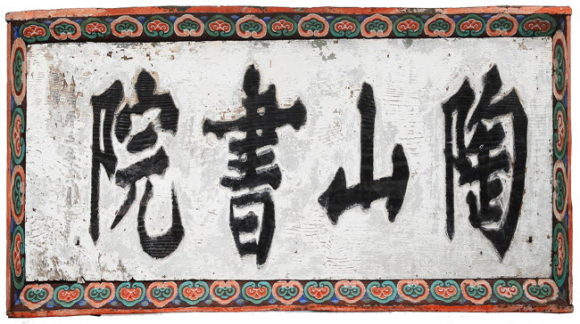 陶山書院